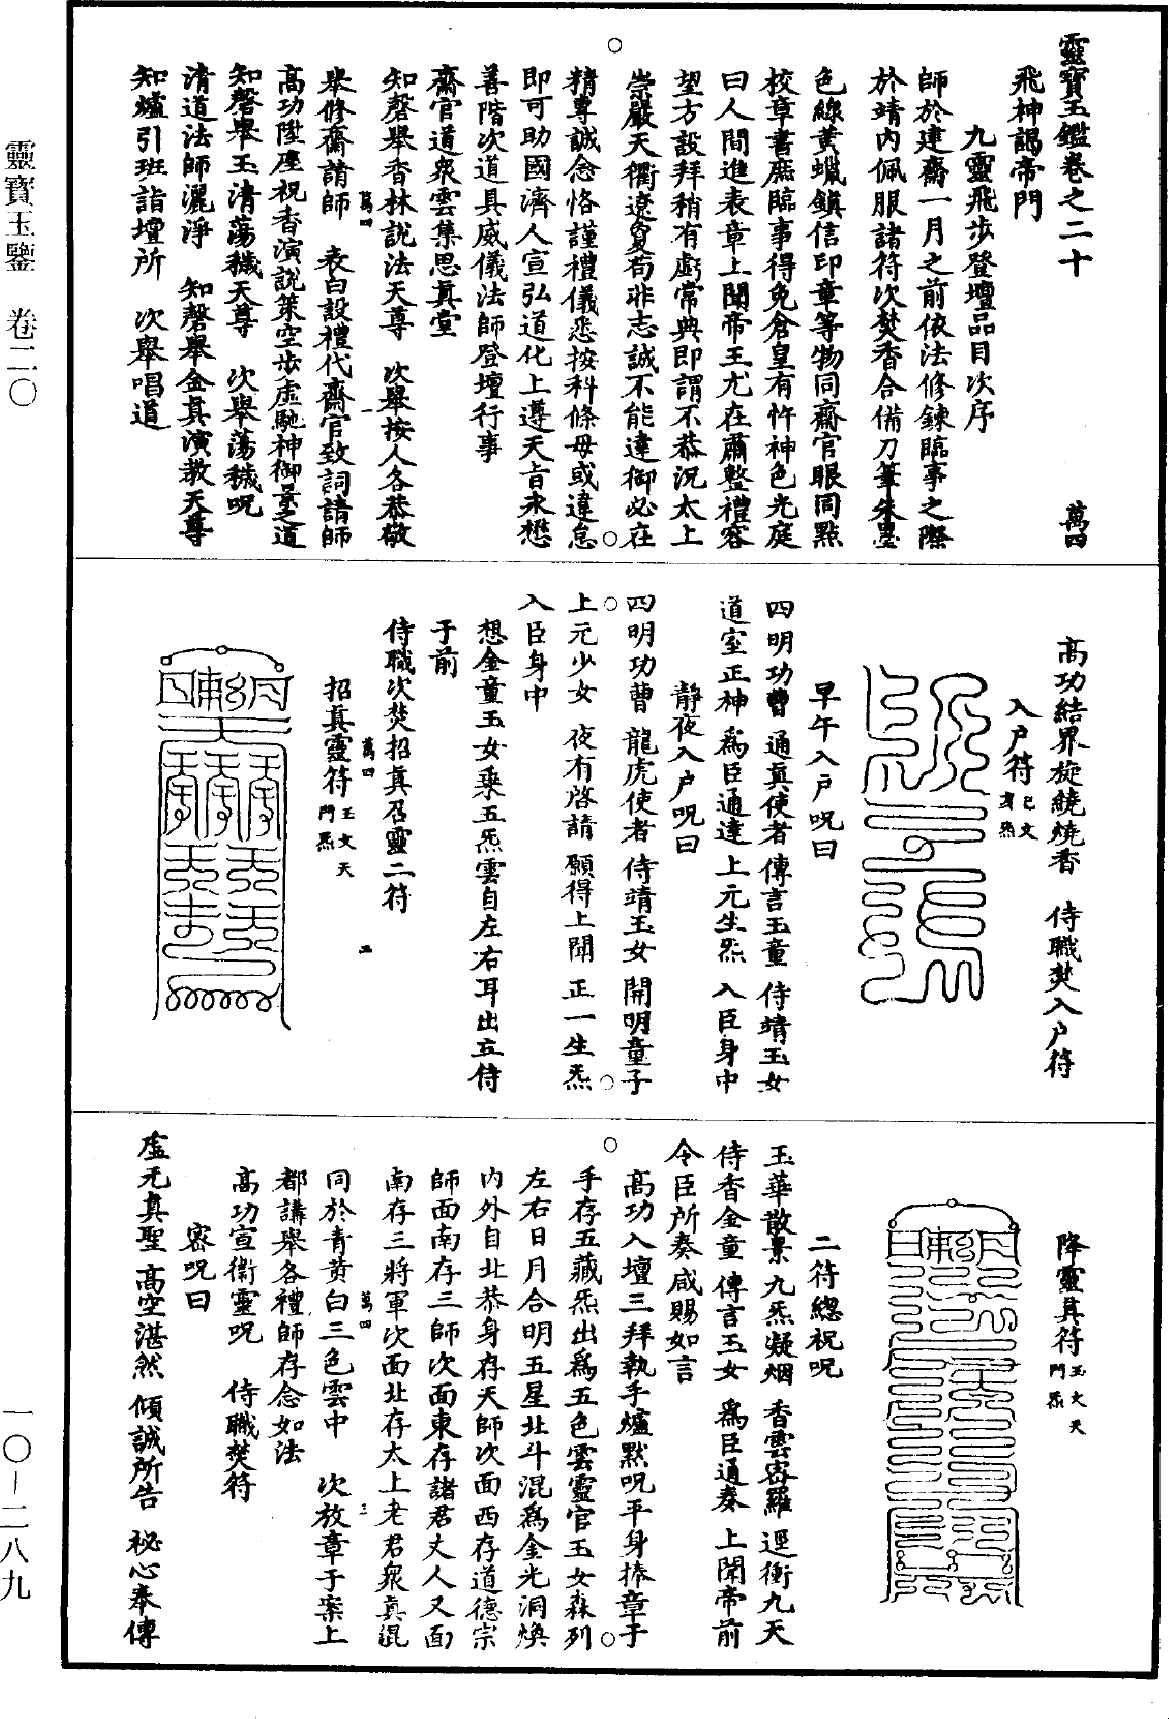 靈寶玉鑑卷之二十 萬四
飛神謁帝門
九靈飛步登壇品目次序
師於建齋一月之前依法修鍊臨事之際
於靖内佩服諸符次焚香合備刀筆朱墨
色綠黃蠟鎮信印章等物同齋官眼同點
校章書庶臨事得免倉皇有忤神色光庭
曰人間進表章上聞帝王尤在肅整禮容
望方設拜稍有虧常典即謂不恭況太上
崇嚴天衢遼敻苟非志誠不能達御必在
精專誠念恪謹禮儀悉按科條毋或違怠
即可助國濟人宣弘道化上遵天旨永懋
善階次道具威儀法師登壇行事
齋官道衆雲集思真堂
知磬舉香林說法天尊 次舉按人各恭敬
萬四 一
舉修齋請師 表白設禮代齋官致詞請師
高功陞座祝香演說策空步虛馳神御景之道
知磬舉玉清蕩穢天尊 次舉蕩穢呪
清道法師灑淨 知磬舉金真演教天尊
知爐引班詣壇所 次舉唱道
高功結界旋繞燒香 侍職焚入户符
入户符 己文身炁
早午入户呪曰
四明功曹 通真使者 傳言玉童 侍靖玉女
道室正神 爲臣通達 上元生炁 入臣身中
靜夜入户呪曰
四明功曹 龍虎使者 侍靖玉女 開明童子
上元少女 夜有啓請 願得上聞 正一生炁
入臣身中
想金童玉女乘五炁雲自左右耳出立侍
于前
侍職次焚招真召靈二符
萬四 二
招真靈符 玉文天門炁
降靈真符 玉文天門炁
二符總祝呪
玉華散景 九炁凝烟 香雲密羅 逕衝九天
侍香金童 傳言玉女 爲臣通奏 上聞帝前
令臣所奏 咸賜如言
高功入壇三拜執手爐默呪平身捧章于
手存五藏炁出爲五色雲靈官玉女森列
左右日月合明五星北斗混爲金光洞煥
内外自北恭身存天師次面西存道德宗
師面南存三師次面東存諸君丈人又面
南存三將軍次面北存太上老君衆真混
萬四 三
同於青黃白三色雲中 次放章于案上
都講舉各禮師存念如法
高功宣衛靈呪 侍職焚符
密呪曰
虛无真聖 高空湛然 傾誠所告 祕心奉傳
靈寶玉鑒 卷二〇
一〇—二八九